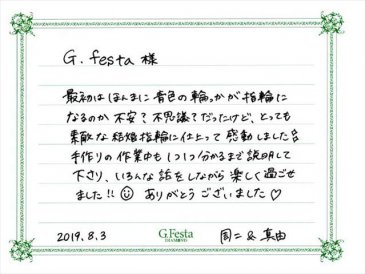 G. festa 様
最初はほんまに青色の輪っかが指輪に
なるのか不安？不思議？だったけど、とっても
素敵な結婚指輪に仕上って感動しました
手作りの作業中も1つ1つ分かるまで説明して
下さり、いろんな話をしながら楽しく過ごせ
ました!! ありがとうございました♡
2019.8.3
G.Festa
DIAMONDS
周二 & 真由